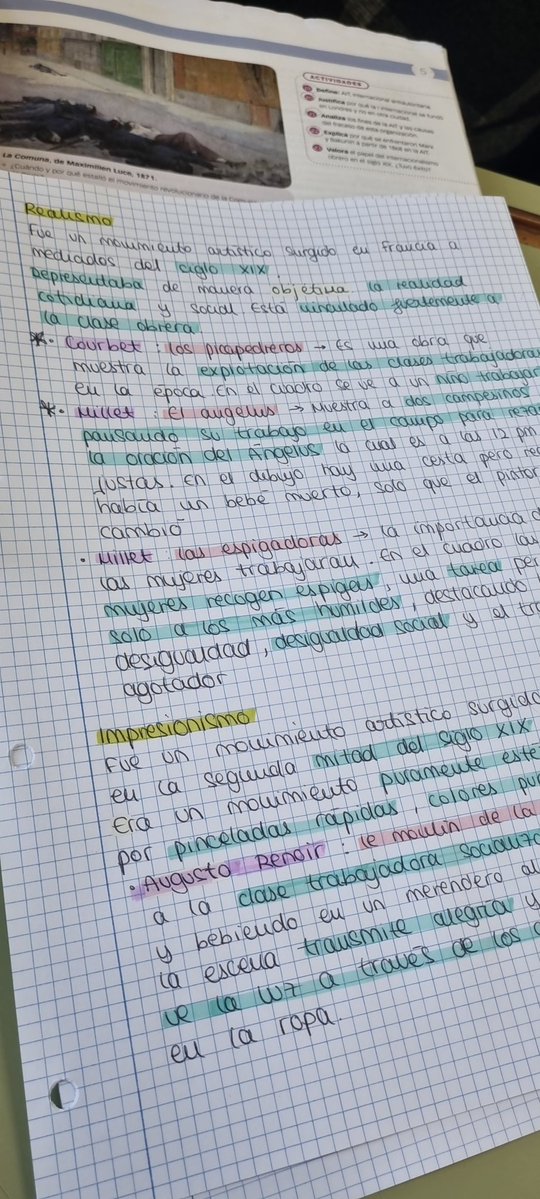 5
ACTIVIDADES
Define: AIT, internacional
Justifica por qué la I Internacional se fundó
en Londres y no en otra ciudad.
Analiza los fines de la AIT y las causas
del fracaso de esta organización.
Explica por qué se enfrentaron Marx
y Bakunin a partir de 1868 en la AIT.
Valora el papel del internacionalismo
obrero en el siglo XIX. ¿Tuvo éxito?
La Comuna, de Maximilien Luce, 1871.
¿Cuándo y por qué estalló el movimiento revolucionario de la Comuna
Realismo
Fue un movimiento artístico surgido en Francia a
mediados del siglo XIX
Representaba de manera objetiva la realidad
cotidiana y social. Está vinculado fuertemente a
la clase obrera
*• Courbet : los picapedreros → Es una obra que
muestra la explotación de las clases trabajadora
en la época. En el cuadro se ve a un niño trabajar
*• Millet : El angelus → Muestra a dos campesinos
pausando su trabajo en el campo para rezar
la oración del Ángelus la cual es a las 12 pm
justas. En el dibujo hay una cesta pero
había un bebé muerto, solo que el pintor
cambió
• Millet : las espigadoras → la importancia d
las mujeres trabajaran. En el cuadro las
mujeres recogen espigen, una tarea per
solo a los más humildes, destacando
desigualdad, desigualdad social y el tra
agotador
Impresionismo
Fue un movimiento artístico surgido
en la segunda mitad del siglo XIX
Era un movimiento puramente este
por pinceladas rápidas, colores pu
• Augusto Renoir : le moulin de la
a la clase trabajadora socializa
y bebiendo en un merendero al
la escena transmite alegría y
ve la luz a través de los
en la ropa.